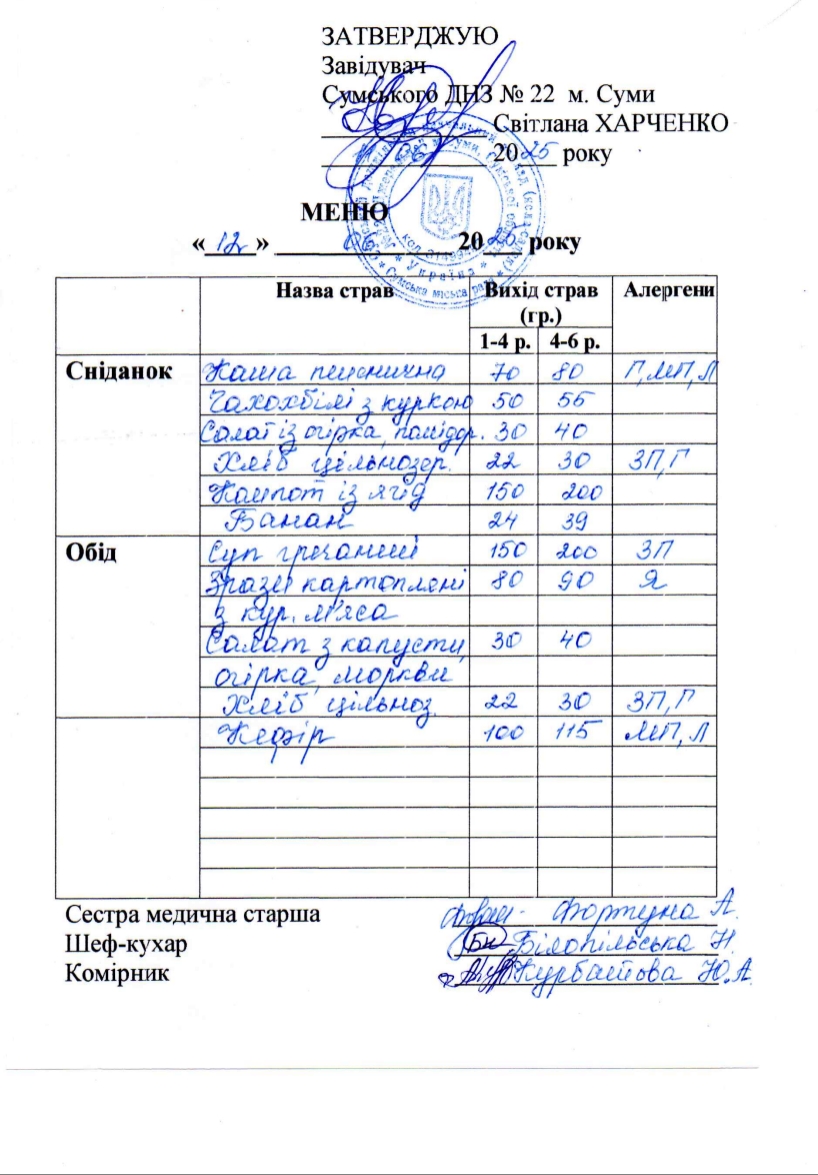 ЗАТВЕРДЖУЮ
Завідувач
Сумського ДНЗ № 22 м. Суми
Світлана ХАРЧЕНКО
11 06 2025 року
МЕНЮ
«12» 06 2025 року
Назва страв Вихід страв (гр.) Алергени
1-4 р. 4-6 р.
Сніданок Каша пшенична 70 80 Г, МП, Л
Чахохбілі з куркою 50 55
Салат із огірка, помідор. 30 40
Хліб цільнозер. 22 30 ЗП, Г
Компот із ягід 150 200
Банан 24 39
Обід Суп гречаний 150 200 ЗП
Зрази картоплені 80 90 Я
з кур. м'яса
Салат з капусти, 30 40
огірка, моркви
Хліб цільноз. 22 30 ЗП, Г
Кефір 100 115 МП, Л
Сестра медична старша Фортуна А.
Шеф-кухар Білопільська Н.
Комірник Курбатова Ю.А.